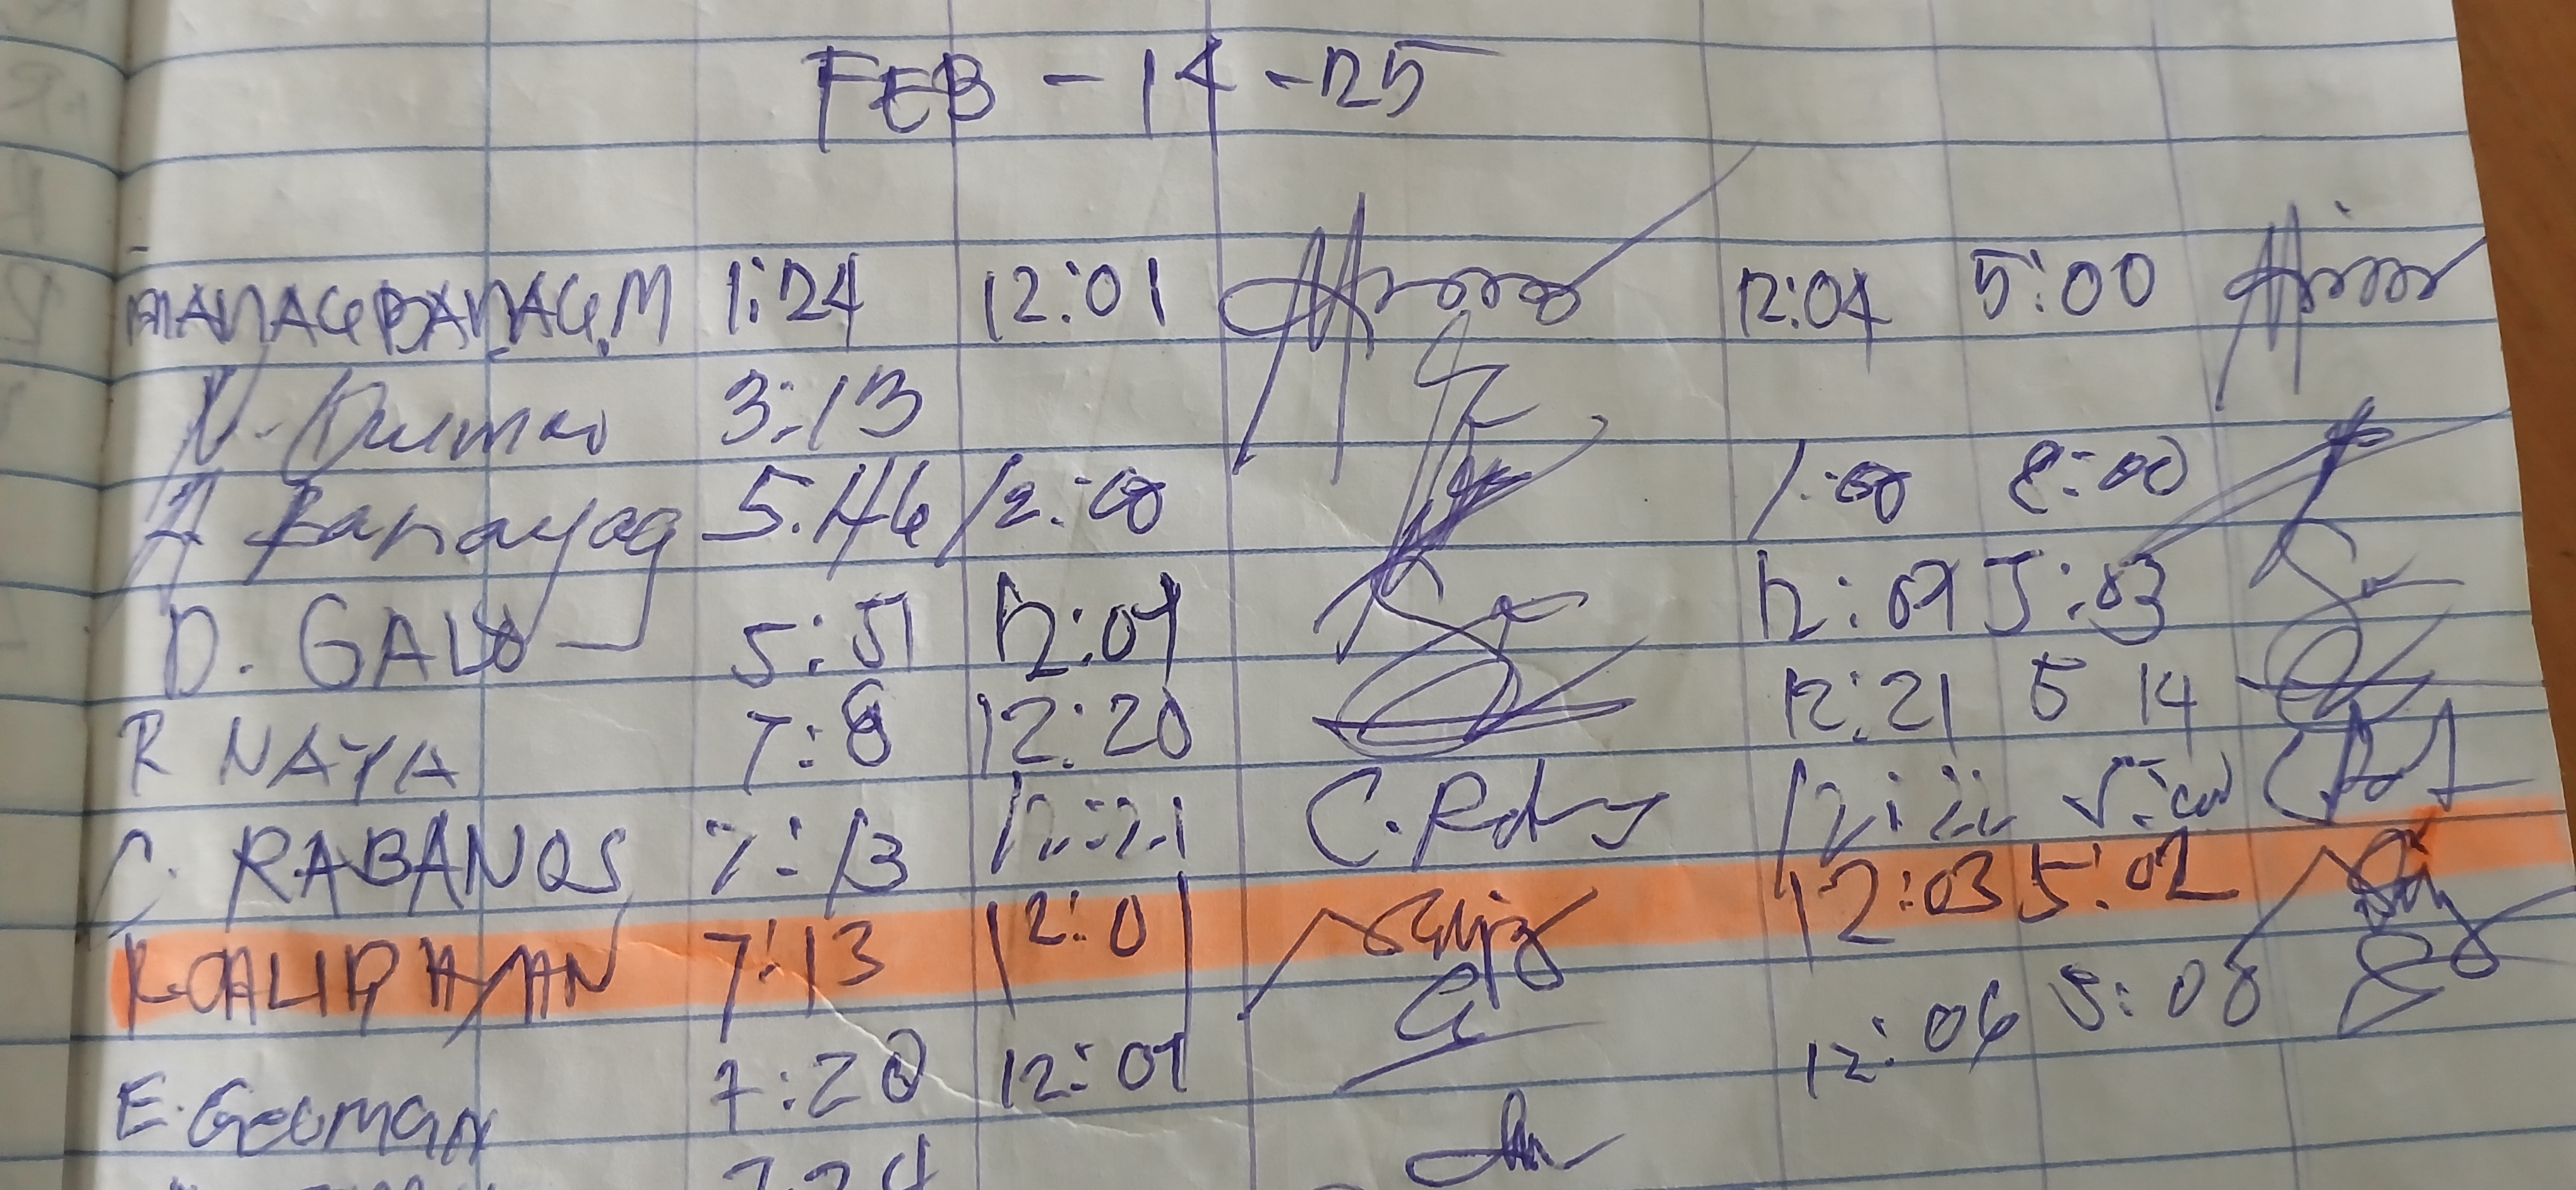 FEB - 14 - 25
MANAGBANAG.M 1:24 12:01 12:04 5:00
N. 3:13
A Banayag 5:46 12:00 1:00 8:00
D. GALO 5:51 12:07 12:09 5:03
R NAYA 7:8 12:20 12:21 5 14
C. RABANOS 7:13 12:21 12:22 5:00
R.CALIPAYAN 7:13 12:01 12:03 5:02
E. GEOMAN 7:20 12:07 12:06 5:08